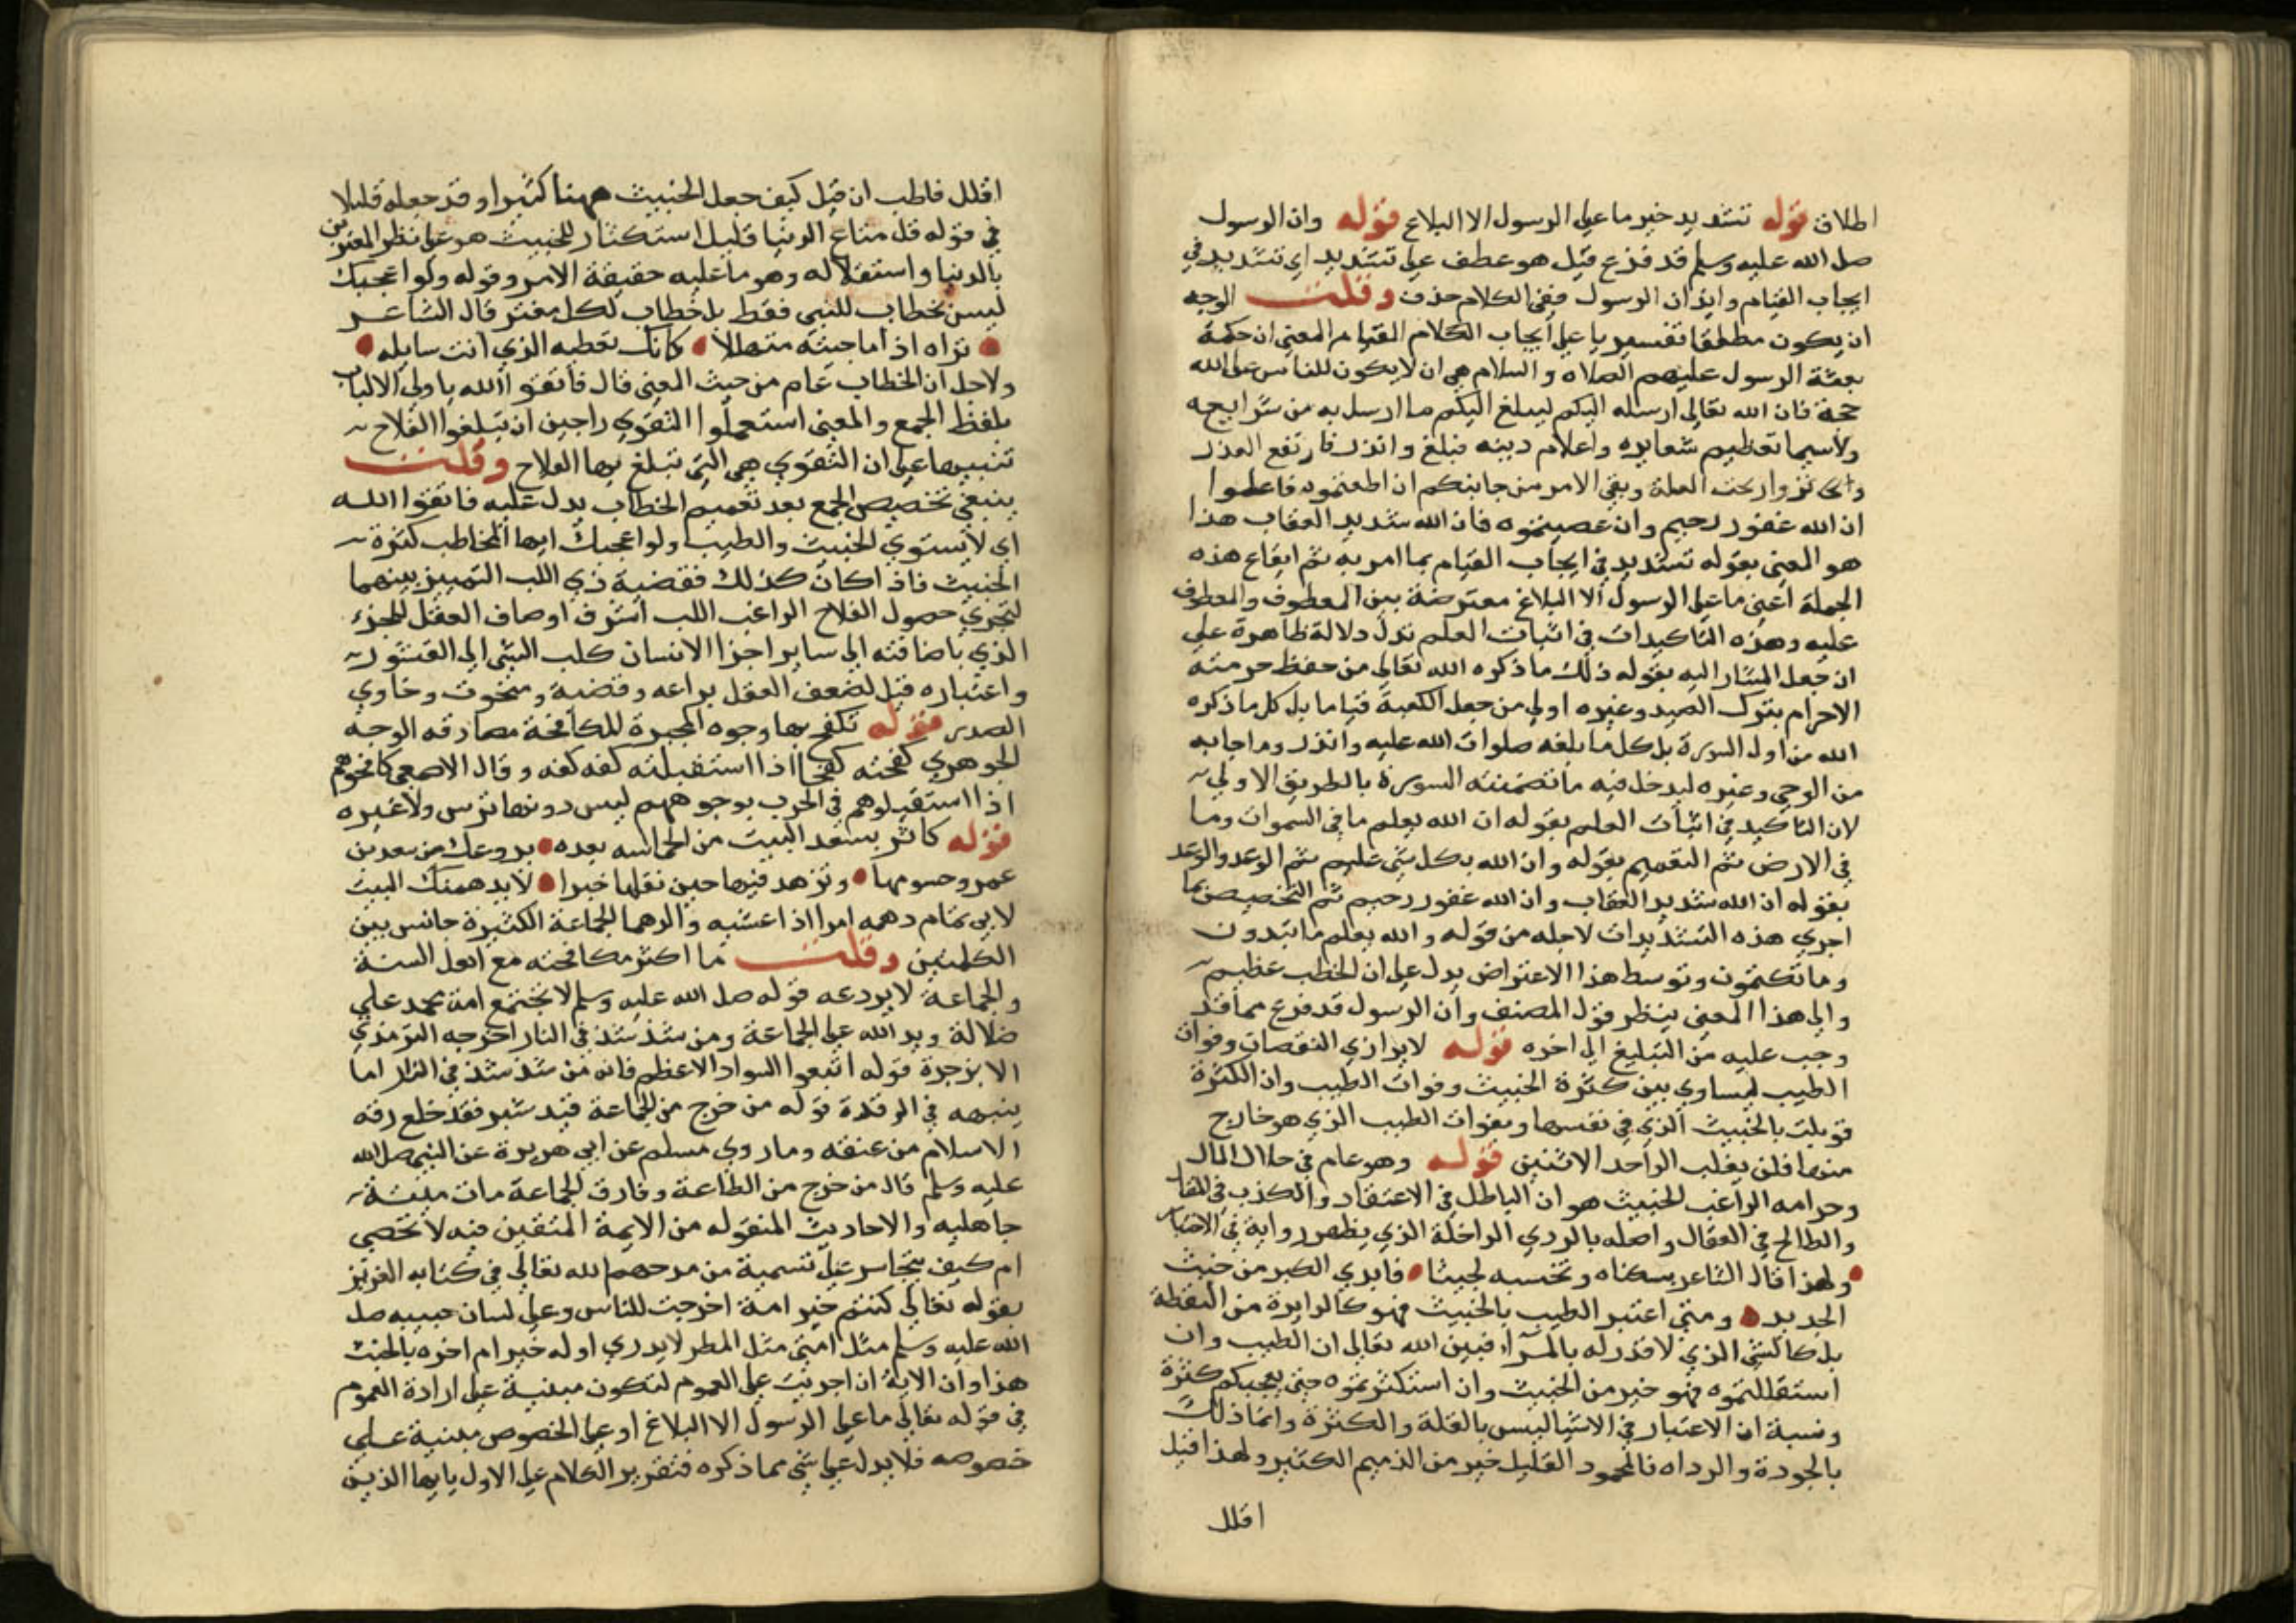 اطلاق قوله تشديد خبر ما على الرسول الا البلاغ قوله وان الرسول
صلى الله عليه وسلم قد فرغ قيل هو عطف على تشديد اي تشديد في
ايجاب القيام وايذان الرسول ففي الكلام حذف وقلت الوجه
ان يكون مطلقا تفسيريا على ايجاب الكلام القيام المعنى ان حكمة
بعثة الرسول عليهم الصلاه والسلام هي ان لا يكون للناس على الله
حجة فان الله تعالى ارسله اليكم ليبلغ اليكم ما ارسل به من شرايعه
ولاسيما تعظيم شعايره واعلام دينه فبلغ وانذر فارتفع العذر
وانزاحت العلة وبقي الامر من جانبكم ان اطعتموه فاعلموا
ان الله غفور رحيم وان عصيتموه فان الله شديد العقاب هذا
هو المعنى بقوله تشديد في ايجاب القيام بما امر به ثم ايقاع هذه
الجملة اعني ما على الرسول الا البلاغ معترضة بين المعطوف والمعطوف
عليه وهذه التاكيدات في اثبات العلم تدل دلالة ظاهرة على
ان جعل المشار اليه بقوله ذلك ما ذكره الله تعالى من حفظ حرمته
الاحرام بترك الصيد وغيره اولى من جعل الكعبة قياما بل كل ما ذكره
الله من اول السورة بل كل ما بلغه صلوات الله عليه وانذر وما اجابه
من الوحي وغيره ليدخل فيه ما تضمنته السورة بالطريق الاولى
لان التاكيد في اثبات العلم بقوله ان الله يعلم ما في السموات وما
في الارض ثم التعميم بقوله وان الله بكل شي عليم ثم الوعد والوعيد
بقوله ان الله شديد العقاب وان الله غفور رحيم ثم التخصيص بما
اجري هذه التشديدات لاجله من قوله والله يعلم ما تبدون
وما تكتمون وتوسط هذا الاعتراض يدل على ان الخطب عظيم
والى هذا المعنى ينظر قول المصنف وان الرسول قد فرغ مما قد
وجب عليه من التبليغ الى اخره قوله لا يوازي النقصان وفوات
الطيب ليساوي بين كثرة الخبيث وفوات الطيب وان الكثرة
قوبلت بالخبيث الذي في نفسها وبفوات الطيب الذي هو خارج
منها فلن يغلب الواحد الاثنين قوله وهو عام في حلال المال
وحرامه الراغب الخبيث هو ان الباطل في الاعتقاد والكذب في المقال
والطالح في الفعال واصله بالردي الداخلة الذي يظهر رواية في الاختبار
ولهذا قال الشاعر سبكناه وتحسبه لجينا فابدي الكير من خبث
الحديد ومتى اعتبر الطيب بالخبيث فهو كالدايرة من النقطة
بل كالشي الذي لا قدر له بالمرآء فبين الله تعالى ان الطيب وان
استقللتموه فهو خير من الخبيث وان استكثرتموه حتى يعجبكم كثرة
ونسبة ان الاعتبار في الاشيا ليس بالقلة والكثرة وانما ذلك
بالجودة والرداه فالمحمود القليل خير من الذميم الكثير ولهذا قيل
اقلل
اقلل فاطب ان قيل كيف جعل الخبيث ههنا كثيرا وقد جعله قليلا
في قوله قل متاع الدنيا قليل استكثار للخبيث هو على نظر المغترين
بالدنيا واستقلاله وهو ما عليه حقيقة الامر وقوله ولو اعجبك
ليس بخطاب للنبي فقط بل خطاب لكل مغتر قال الشاعر
تراه اذا ما جيته متهللا كانك تعطيه الذي انت سايله
ولاجل ان الخطاب عام من حيث المعنى قال فاتقوا الله يا ولي الالباب
بلفظ الجمع والمعنى استعملوا التقوي راجين ان تبلغوا الفلاح
تنبيها على ان التقوي هي التي تبلغ بها الفلاح وقلت
ينبغي تخصيص الجمع بعد تعميم الخطاب يدل عليه فاتقوا الله
اي لا يستوي الخبيث والطيب ولو اعجبك ايها المخاطب كثرة
الخبيث فاذا كان كذلك فقضية ذي اللب التمييز بينهما
لتجري حصول الفلاح الراغب اللب اشرف اوصاف العقل للجزء
الذي باضافته الى ساير اجزا الانسان كلب الشي الى القشور
واعتباره قيل لضعف العقل يراعه وقضية ومنخوب وخاوي
الصدر قوله تكفح بها وجوه المجبرة للكافحة مصادفه الوجه
الجوهري كفحته كفحا اذا استقبلته كفه كفه وقال الاصمعي كافحوهم
اذا استقبلوهم في الحرب بوجوههم ليس دونها ترس ولا غيره
قوله كاثر بسعد البيت من الحماسه بعده يروعك من سعد بن
عمرو جسومها وتزهد فيها حين تقتلها خبرا لا يدهمنك البيت
لابي تمام دهمه امرا اذا غشيه والدهما الجماعة الكثيرة جانس بين
الكلمتين وقلت ما اكثر مكافحته مع اهل السنة
والجماعة لا يردعه قوله صلى الله عليه وسلم لا تجتمع امة محمد على
ضلالة ويد الله على الجماعة ومن شذ شذ في النار اخرجه الترمذي
الا يزجرة قوله اتبعوا السواد الاعظم فانه من شذ شذ في النار اما
ينبهه في الرقدة قوله من خرج من الجماعة قيد شبر فقد خلع رقه
الاسلام من عنقه وما روي مسلم عن ابي هريرة عن النبي صلى الله
عليه وسلم قال من خرج من الطاعة وفارق الجماعة مات ميتة
جاهليه والاحاديث المنقوله من الايمة المتقين فيه لا تحصي
ام كيف يتجاسر على تسمية من مدحهم الله تعالى في كتابه العزيز
بقوله تعالى كنتم خير امة اخرجت للناس وعلى لسان حبيبه صلى
الله عليه وسلم مثل امتي مثل المطر لا يدري اوله خير ام اخره بالخبث
هذا وان الاية ان اجريت على العموم لتكون مبنية على ارادة العموم
في قوله تعالى ما على الرسول الا البلاغ او على الخصوص مبنية على
خصوصه فلا يدل على شي مما ذكره فتقرير الكلام على الاول يا يها الذين